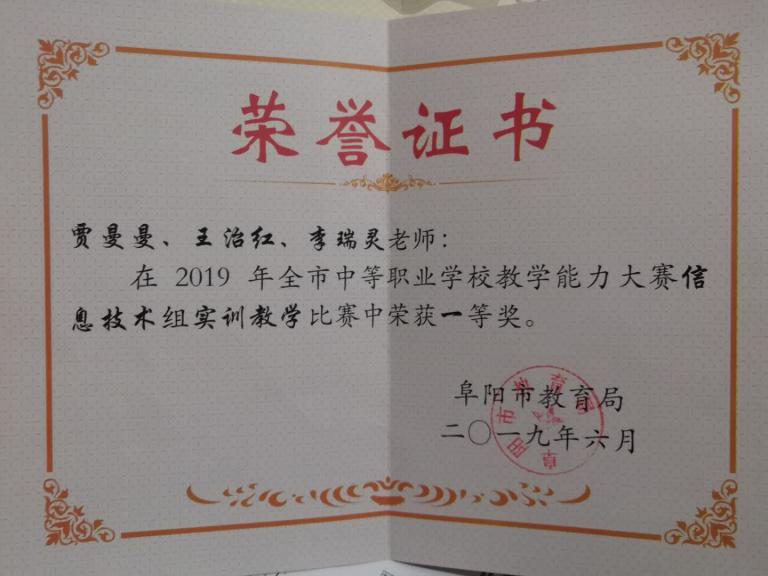 荣誉证书
贾曼曼、王治红、李瑞灵老师：
在 2019 年全市中等职业学校教学能力大赛信
息技术组实训教学比赛中荣获一等奖。
阜阳市教育局
二〇一九年六月